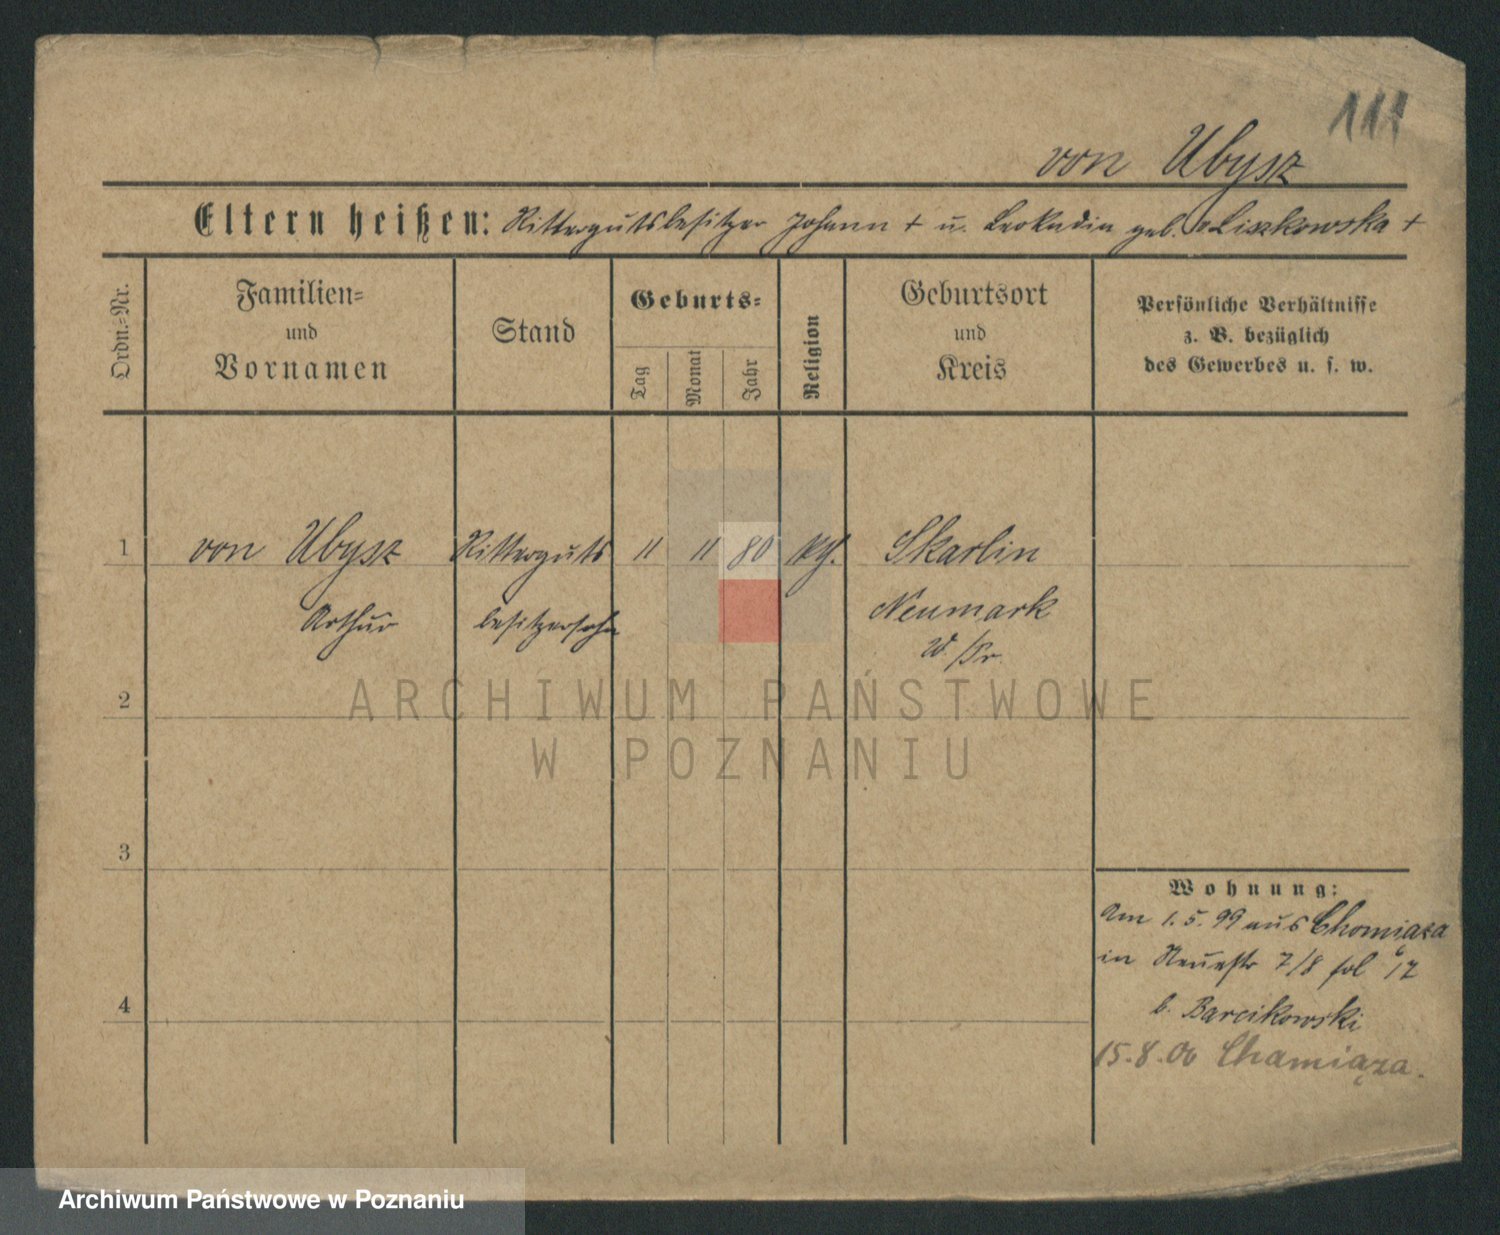 111
von Ubysz
Eltern heißen: Rittergutsbesitzer Johann + u. Leokadia geb. v Liszkowska +
Ordn.-Nr.
Familien- und Vornamen
Stand
Geburts-
Tag
Monat
Jahr
Religion
Geburtsort und Kreis
Persönliche Verhältnisse
z. B. bezüglich
des Gewerbes u. s. w.
1 von Ubysz Ritterguts 11 11 80 kth. Skarlin
Arthur besitzersohn Neumark
W./Pr.
2
3
4
Wohnung:
Am 1.5.99 aus Chomiaza
in Neuestr 7/8
b. Barcikowski
15.8.00 Chamiąza.
ARCHIWUM PAŃSTWOWE
W POZNANIU
Archiwum Państwowe w Poznaniu